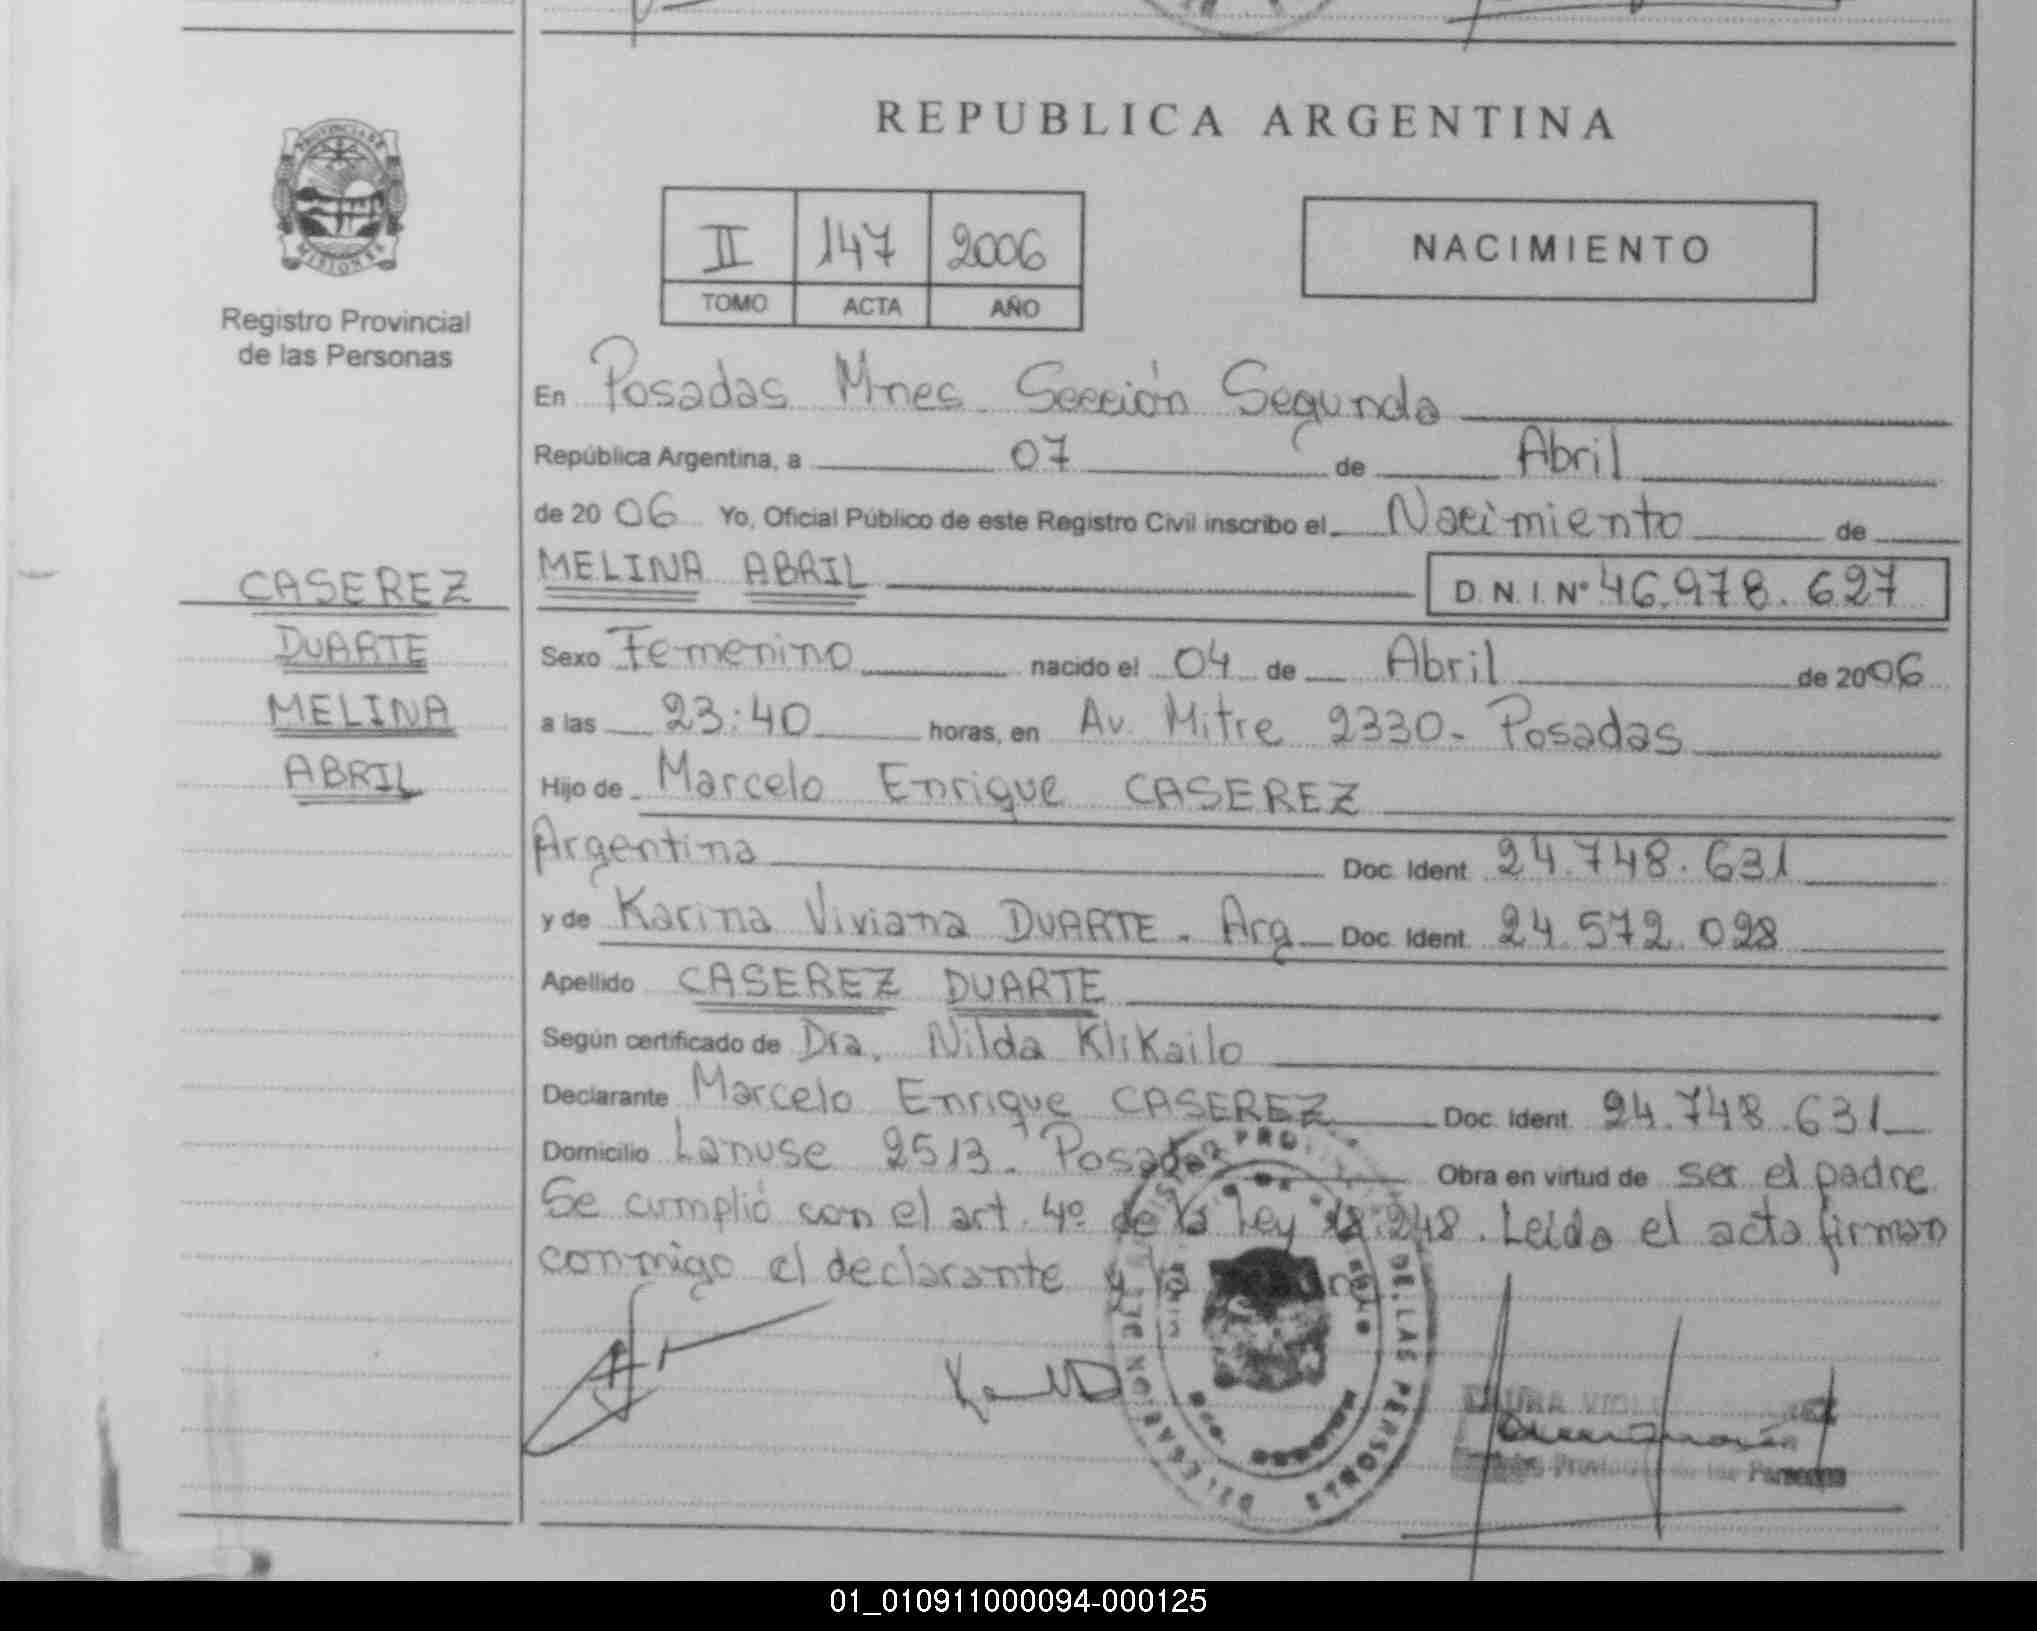 REPUBLICA ARGENTINA
PROVINCIA DE
MISIONES
Registro Provincial
de las Personas
II 147 2006
TOMO ACTA AÑO
NACIMIENTO
En Posadas Mnes. Sección Segunda
República Argentina, a 07 de Abril
de 2006 Yo, Oficial Público de este Registro Civil inscribo el Nacimiento de
MELINA ABRIL D.N.I. Nº 46.978.627
CASEREZ
DUARTE
MELINA
ABRIL
Sexo Femenino nacido el 04 de Abril de 2006
a las 23:40 horas, en Av. Mitre 2330 - Posadas
Hijo de Marcelo Enrique CASEREZ
Argentina Doc. Ident. 24.748.631
y de Karina Viviana DUARTE - Arg Doc. Ident. 24.572.028
Apellido CASEREZ DUARTE
Según certificado de Dra. Nilda Klikailo
Declarante Marcelo Enrique CASEREZ Doc. Ident. 24.748.631
Domicilio Lanuse 2513 - Posadas Obra en virtud de ser el padre
Se cumplió con el art. 4º de la Ley 18.248. Leída el acta firman
conmigo el declarante y la
DE LAS PERSONAS
01_010911000094-000125